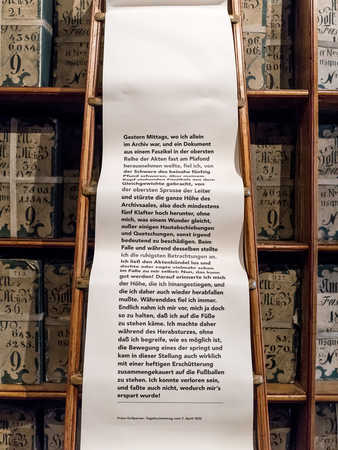 Gestern Mittags, wo ich allein
im Archiv war, und ein Dokument
aus einem Faszikel in der obersten
Reihe der Akten fast am Plafond
herausnehmen wollte, fiel ich, von
der Schwere des beinahe fünfzig
Pfund schweren
Gleichgewichte gebracht, von
der obersten Sprosse der Leiter
und stürzte die ganze Höhe des
Archivsaales, also doch mindestens
fünf Klafter hoch herunter, ohne
mich, was einem Wunder gleicht,
außer einigen Hautabschiebungen
und Quetschungen, sonst irgend
bedeutend zu beschädigen. Beim
Falle und während desselben stellte
ich die ruhigsten Betrachtungen an.
Ich ließ den Aktenbündel los und
dachte oder sagte vielmehr schon
im Falle zu mir selbst: Nun, das kann
gut werden! Darauf erinnerte ich mich
der Höhe, die ich hinangestiegen, und
die ich daher auch wieder herabfallen
mußte. Währenddes fiel ich immer.
Endlich nahm ich mir vor, mich ja doch
so zu halten, daß ich auf die Füße
zu stehen käme. Ich machte daher
während des Herabsturzes, ohne
daß ich begreife, wie es möglich ist,
die Bewegung eines der springt und
kam in dieser Stellung auch wirklich
mit einer heftigen Erschütterung
zusammengekauert auf die Fußballen
zu stehen. Ich konnte verloren sein,
und faßte auch nicht, wodurch mir's
erspart wurde!
Franz Grillparzer, Tagebucheintrag vom 7. April